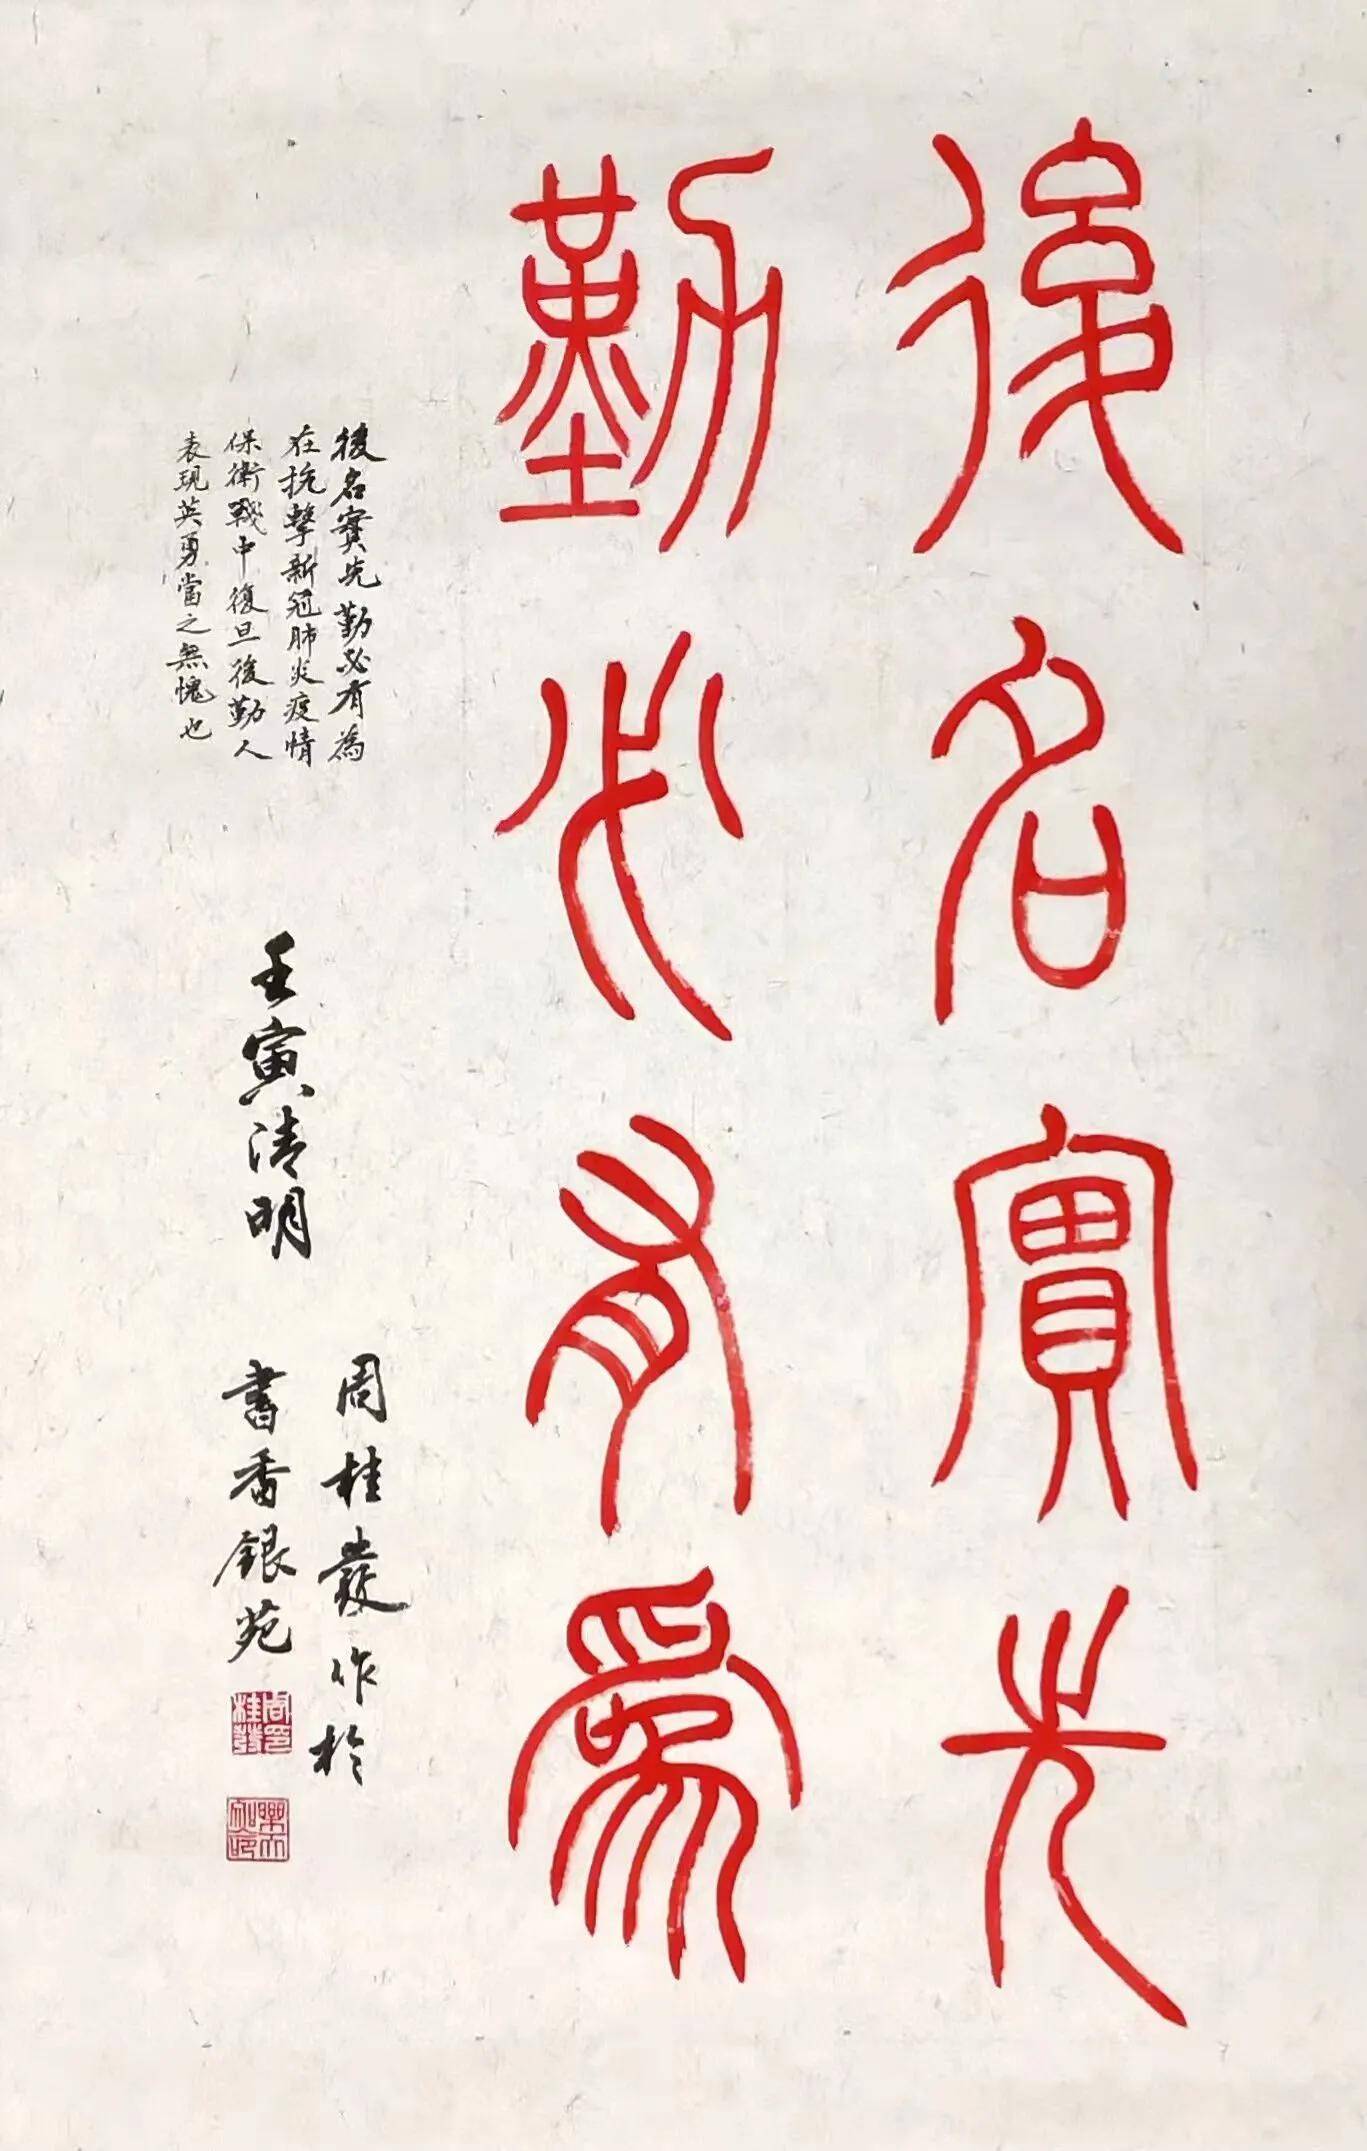 後名實先
勤必有爲
後名實先勤必有為
在抗擊新冠肺炎疫情
保衛戰中復旦後勤人
表現英勇當之無愧也
壬寅清明
周桂發作於
書香銀苑
周印桂發